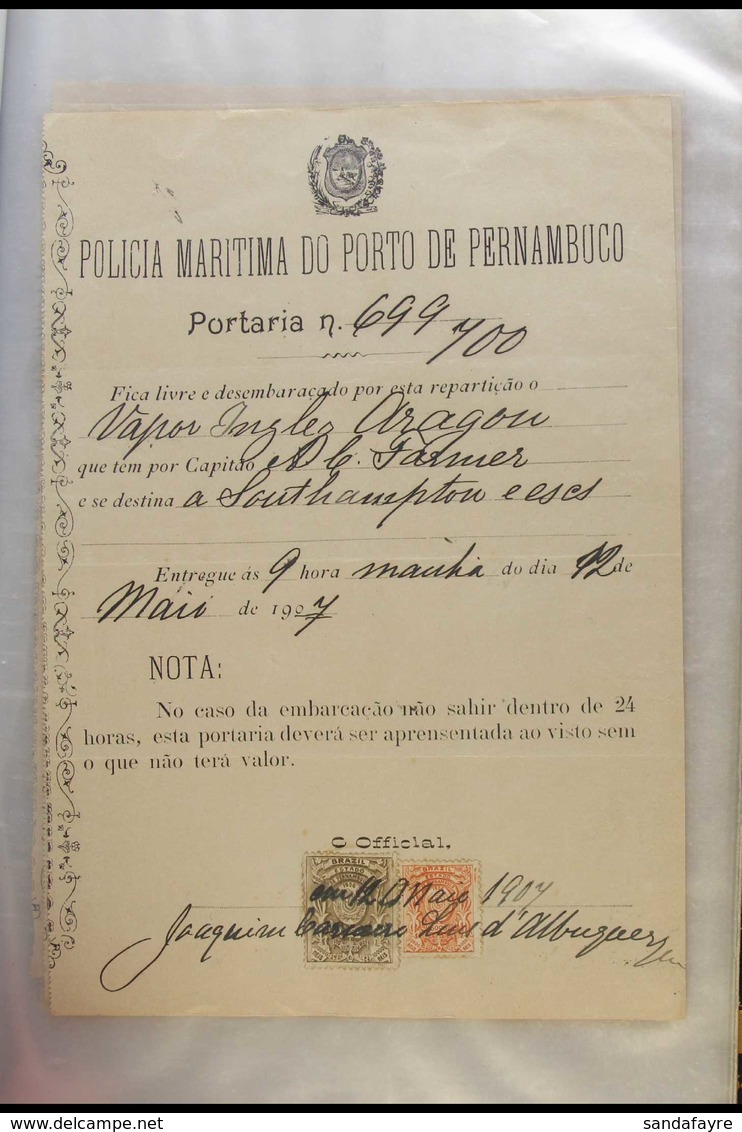 POLICIA MARITIMA DO PORTO DE PERNAMBUCO
Portaria n. 699
700
Fica livre e desembaraçado por esta repartição o
Vapor Inglez Aragon
que tem por Capitão A C. Farmer
e se destina a Southampton e escs
Entregue ás 9 hora manhã do dia 12 de
Maio de 1907
NOTA:
No caso da embarcação não sahir dentro de 24
horas, esta portaria deverá ser aprensentada ao visto sem
o que não terá valor.
O Official,
BRAZIL BRAZIL
ESTADO ESTADO
em 12 Maio 1907
Joaquim Luis d'Albuquer
sandafayre